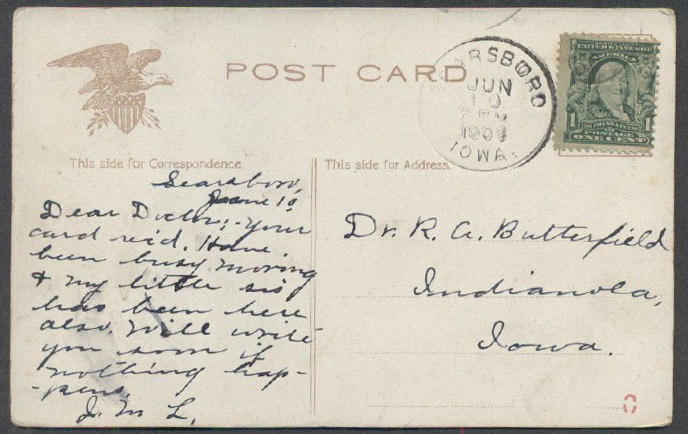 POST CARD
SEARSBORO
JUN
10
7 PM
1909
IOWA.
UNITED STATES OF AMERICA
1 1
ONE CENT
This side for Correspondence.
This side for Address.
Searsboro,
June 10
Dear Doctor;- Your
card rec'd. Have
been busy moving
& my little sis
has been here
also. Will write
you soon if
nothing hap-
-pens.
J. M L,
Dr. R. A. Butterfield
Indianola,
Iowa.